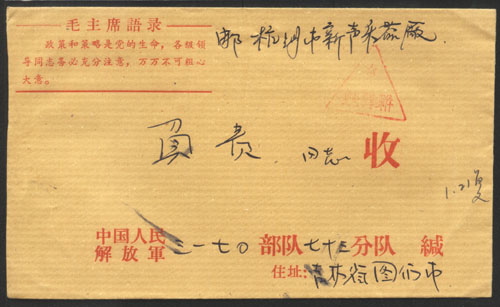 毛主席語录
政策和策略是党的生命，各级领
导同志务必充分注意，万万不可粗心
大意。
邮 杭州市新声乐器厂
同志 收
1.21复
中国人民
解放軍 三一七〇 部队 七十三 分队 缄
住址: 吉林省图们市